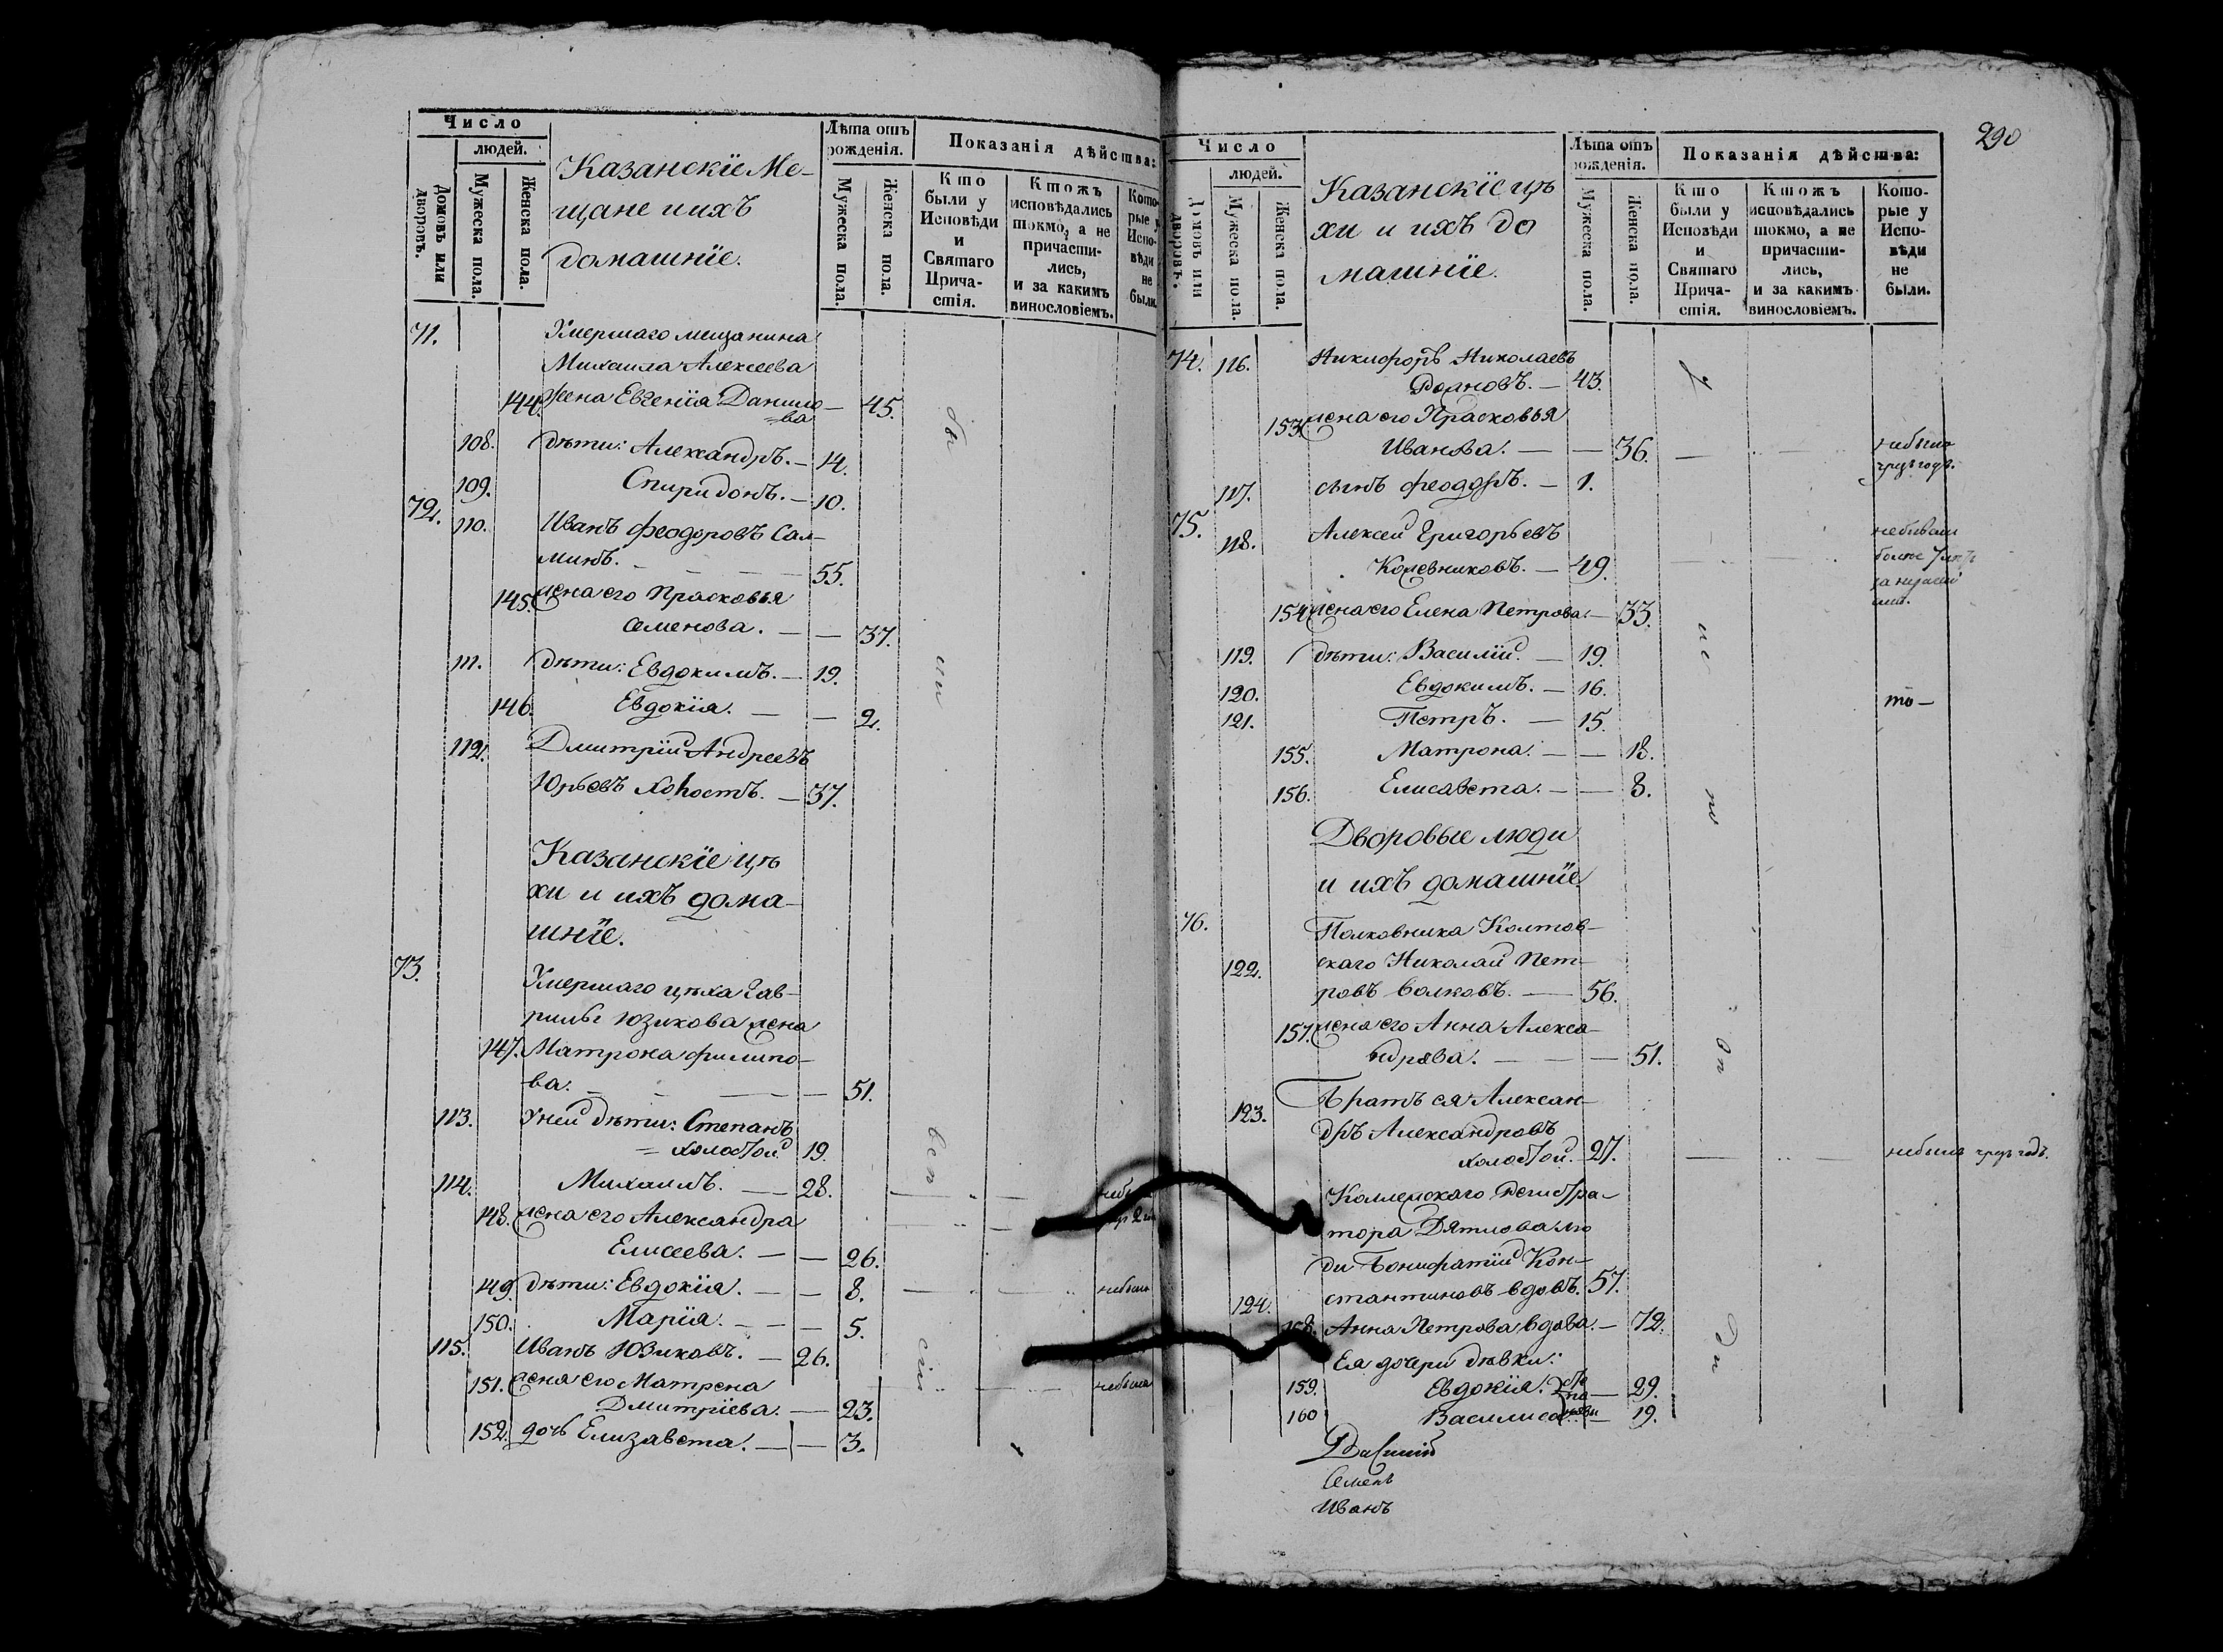 Число
людей.
Домовъ или дворовъ.
Мужеска пола.
Женска пола.
Казанскіе Ме-
щане и ихъ
домашніе.
Лѣта отъ
рожденія.
Мужеска пола.
Женска пола.
Показанія дѣйства:
Кто
были у
Исповѣди
и
Святаго
Прича-
стія.
Ктожъ
исповѣдались
токмо, а не
причасти-
лись,
и за какимъ
винословіемъ.
Кото-
рые у
Испо-
вѣди
не
были.
71. Умершаго мещанина
Михаила Алексеева
144. жена Евгенія Данило- 45.
ва
108. дѣти: Александръ. — 14.
109. Спиридонъ. — 10.
72. 110. Иванъ Феодоровъ Сал-
минъ. — 55.
145. жена его Прасковья
Семенова. — — 37.
111. дѣти: Евдокимъ. — 19.
146. Евдокія. — — 2.
112. Дмитрій Андреевъ
Юрьевъ холостъ. — 37.
Казанскіе цѣ
хи и ихъ дома-
шніе.
73. Умершаго цѣха Гав-
рилы Юзикова жена
147. Матрона Филипо-
ва. — — 51.
113. У ней дѣти: Степанъ
холостой. 19.
114. Михаилъ. — 28.
148. жена его Александра
Елисеева. — — 26.
149. дѣти: Евдокія. — — 8. небыла
150. Марія. — — 5.
115. Иванъ Юзиковъ. — 26.
151. жена его Матрена небыла
Дмитріева. — 23.
152. дочь Елизавета. — — 3.
290
Число
людей.
Домовъ или дворовъ.
Мужеска пола.
Женска пола.
Казанскіе цѣ
хи и ихъ до
машніе.
Лѣта отъ
рожденія.
Мужеска пола.
Женска пола.
Показанія дѣйства:
Кто
были у
Исповѣди
и
Святаго
Прича-
стія.
Ктожъ
исповѣдались
токмо, а не
причасти-
лись,
и за какимъ
винословіемъ.
Кото-
рые у
Испо-
вѣди
не
были.
74. 116. Никифоръ Николаевъ
43.
153. жена его Прасковья
Иванова. — — 36. небыла
чрезъ годъ.
117. сынъ Феодоръ. — 1.
75. 118. Алексей Григорьевъ небывали
Кожевниковъ. — 49. более
154. жена его Елена Петрова. — 33.
119. дѣти: Василій. — 19.
120. Евдокимъ. — 16. то —
121. Петръ. — 15.
155. Матрона. — — 18.
156. Елисавета. — — 8.
Дворовые люди
и ихъ домашніе
76. Полковника Колтов-
122. скаго Николай Пет-
ровъ Волковъ. — 56.
157. жена его Анна Алекса-
ндрова. — — 51.
123. Братъ ея Алексан-
дръ Александровъ
холостой. — 27. небылъ чрезъ годъ.
Коллежскаго Регистра-
тора Дятлова лю
ди Бонифатій Кон-
124. стантиновъ вдовъ. 57.
158. Анна Петрова вдова. — 72.
Ея дочери дѣвки:
159. Евдокія. — 29.
160 Василиса — 19.
Семенъ
Иванъ